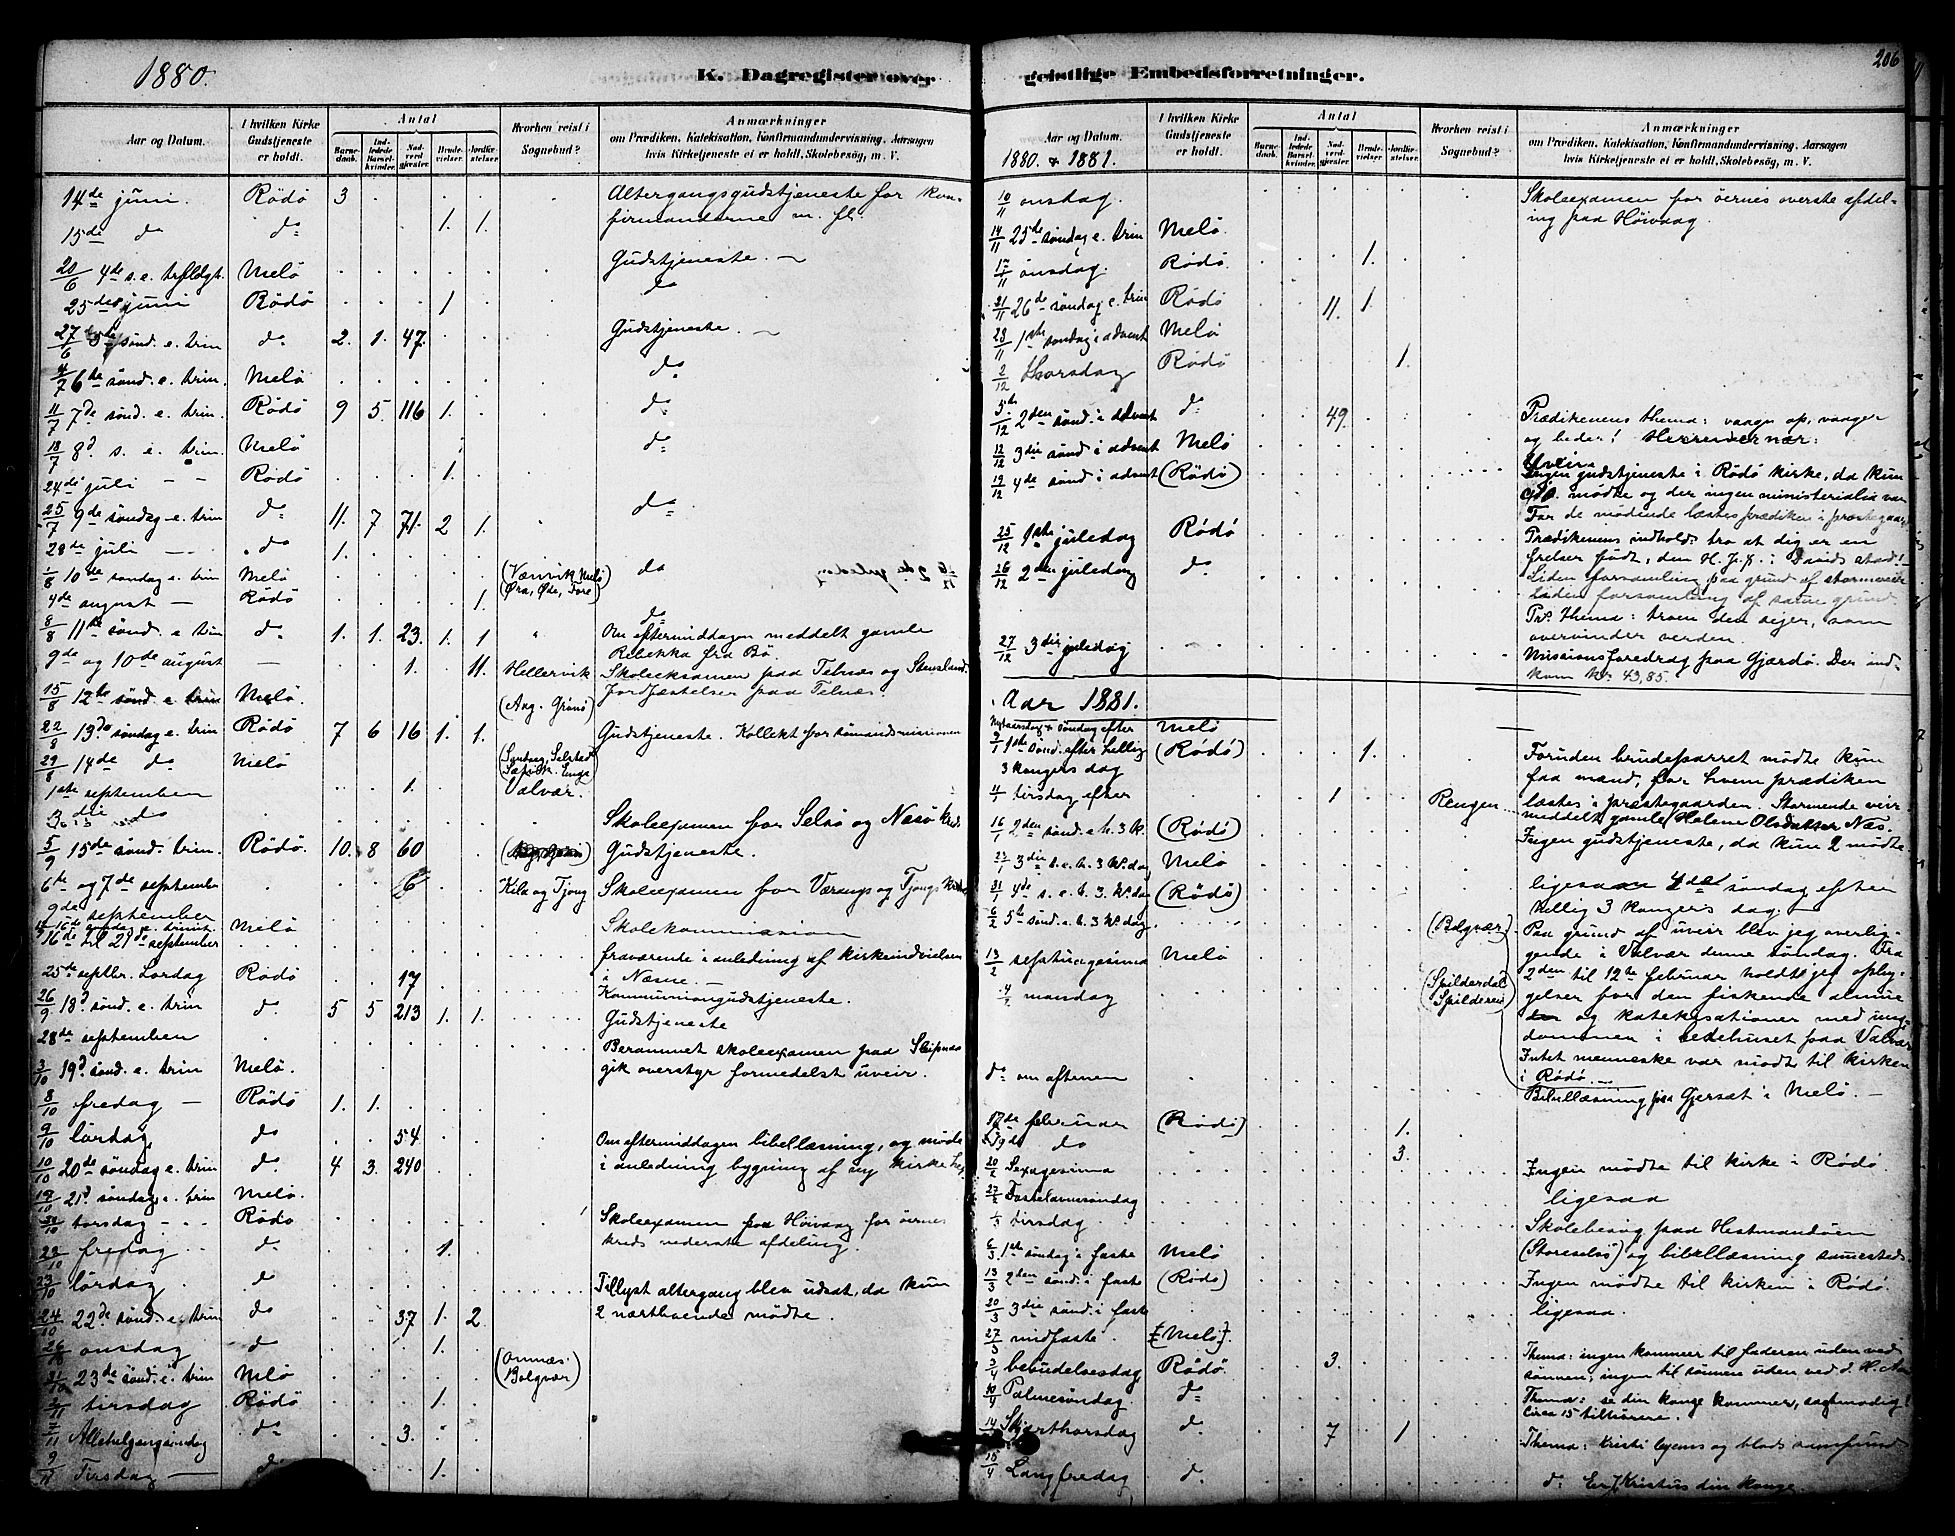 1880.
K. Dagregister over
Aar og Datum.
I hvilken Kirke Gudstjeneste er holdt.
Antal
Barnedaab.
Indledede Barselkvinder.
Nadverdgjester.
Brudevielser.
Jordfæstelser.
Hvorhen reist i Sognebud?
Anmærkninger
om Prædiken, Katekisation, Konfirmandundervisning, Aarsagen
hvis Kirketjeneste ei er holdt, Skolebesög, m. V.
14de juni. Rödö 3 . . . . Altergangsgudstjeneste for kon-
firmanderne m. fl.
15de do do . . . 1. 1.
20/6 4de s. e. trefldgt. Melö . . . . . Gudstjeneste.
25de juni Rödö . . . 1 do
27/6 5te sönd. e. trin do 2. 1. 47. . . Gudstjeneste.
4/7 6te sönd. e. trin. Melö . . . . . do
11/7 7de sönd. e. trin. Rödö 9 5 116 1. . do
18/7 8d s. e. trin. Melö . . . . . do
24de juli - - Rödö . . . 1.
25/7 9de söndag e. trin do 11. 7 71. 2 1. do
28de juli - do 1.
1/8 10de söndag e. trin Melö . . . . . (Værnvik, Melö Öra, Öde, Fore) do
4de august - Rödö . . . . 1.
8/8 11te sönd. e trin do 1. 1. 23. 1. 1 do
Om eftermiddagen meddelt gamle
Rebekka fra Bö
9de og 10de august - . . 1. . 11. Hellervik Skoleeksamen paa Telnes og Stensland.
Jordfæstelser paa Telnes.
15/8 12te sönd. e. trin Melö (Aag. Grönö)
22/8 13de söndag e. trin Rödö 7 6 16 1. 1. Gudstjeneste. Kollekt for sömandsmissionen
29/8 14de do Melö
1ste september . . 1. . . Valvær.
3die do Skoleexamen for Selsö og Næsö kreds.
5/9 15de sönd. trin. Rödö. 10. 8 60 . . Gudstjeneste.
6te og 7de septembe . . 6 . . Kila og Tjong Skoleexamen for Værangs og Tjongs kreds
9de september Skolekommission
16de til 21de september Melö fraværende i anledning af kirkeindvielsen
i Næsne.
25de septbr. Lördag Rödö . . 17 Kommuniongudstjeneste.
26/9 18d sönd. e. trin do 5 5 213 1. 1. Gudstjeneste
28de september Berammet skoleexamen paa Sleipnes
gik overstyr formedelst uveir.
3/10 19d sönd. e. trin Melö.
8/10 fredag - Rödö 1. 1.
9/10 lördag do . . 54 Om eftermiddagen bibellæsning, og möde
10/10 20de söndag e. trin do 4 3. 240 i anledning bygning af ny kirke her
21d söndag e. trin Melö.
torsdag - Rödö Skoleexamen paa Höivaag for öernes
kreds nederste afdeling.
22/10 fredag do . . . 1.
23/10 lördag do Tillyst altergang blev udsat, da kun
2 nærtboende mödte.
24/10 22de sönd. e. trin do . . 37 1. 2.
onsdag do . . . 1.
31/10 23de sönd. e. trin Melö (Omnæs. Bolgvær)
2/11 tirsdag Rödö . . . 1.
7/11 Allehelgensöndag do . . 3.
9/11 Tirsdag - do . . . 1.
206
geistlige Embedsforretninger.
Aar og Datum.
1880. & 1881.
I hvilken Kirke Gudstjeneste er holdt.
Antal
Barnedaab.
Indledede Barselkvinder.
Nadverdgjester.
Brudevielser.
Jordfæstelser.
Hvorhen reist i Sognebud?
Anmærkninger
om Prædiken, Katekisation, Konfirmandundervisning, Aarsagen
hvis Kirketjeneste ei er holdt, Skolebesög, m. V.
10/11 onsdag. Skoleexamen for öernes överste afdel-
ing paa Höivaag.
14/11 25de söndag e. trin Melö.
17/11 onsdag. Rödö. . . . 1.
21/11 26de söndag e. trin Rödö . . 11. 1.
28/11 1ste söndag i advent Melö
2/12 thorsdag Rödö . . . . 1.
5te/12 2den sönd. i advent do . . 49. Prædikenens thema: vaagn op, vaager
og beder! Herren er nær.
12/12 3die sönd i advent Melö
19/12 4de sönd i advent (Rödö) Ingen gudstjeneste i Rödö kirke, da kun
mödte og der ingen ministerialia var
For de mödende læstes prædiken i præstegaard
25/12 1ste juledag Rödö Prædikenens indhold: tro at dig er en
frelser födt, den H. J. X. i Davids stad!
26/12 2den juledag do Liden forsamling paa grund af stormveir
Liden forsamling af samme grund.
Pr. thema: troen den seier, som
overvinder verden.
27/12 3die juledag Missionsforedrag paa Gjerdö. Der ind-
kom kr 43,85.
Aar 1881.
Nytaarsdag & söndag efter Melö
9/1 1ste sönd. efter hellig 3 kongers dag (Rödö) . . . 1. Foruden brudeparret mödte kun
faa mænd, for hvem prædiken
læstes i præstegaarden. Stormende veir
4/1 tirsdag efter . . 1 . . Rengen meddelt gamle Helene Olsdatter Næs.
16/1 2den sönd. e. h. 3 k. (Rödö) Ingen gudstjeneste, da kun 2 mödte
23/1 3die s. e. h. 3 k. dag Melö
4de s. e. h. 3. k. dag (Rödö) ligesaa 4de söndag efter
hellig 3 kongers dag.
6/2 5te sönd. e. h. 3 k. dag (Bolgvær) Paa grund af uveir blev jeg overlig-
gende i Valvær denne söndag. Fra
13/2 septuagesima Melö 2den til 12te februar holdt jeg opbyg-
(Spilderdal Spilderen) gelser for den fiskende almue
mandag og katekisationer med ung-
dommen i bedehuset paa Valvær
Intet menneske var mödt til kirken
i Rödö.
do om aftenen Bibellæsning paa Gjersæt i Melö.
17de februar (Rödö) . . . . 1.
19de do . . . . 3.
20/2 Sexagesima Ingen mödte til kirke i Rödö.
27/2 Fastelavnssöndag ligesaa
tirsdag Skolebesög paa Hestmandöen
(Storeselsö) og bibellæsning sammesteds.
6/3 1ste söndag i faste Melö
13/3 2den sönd. i faste (Rödö) Ingen mödte til kirken i Rödö.
20/3 3die sönd. i faste ligesaa.
27/3 midfaste. (Melö).
3/4 bebudelsesdag Rödö. . . 3. Thema: ingen kommer til faderen uden ved
sönnen, ingen til sönnen uden ved d. H. Aa.
10/4 Palmesöndag do Thema: se din konge kommer, sagtmodig!
Circa 15 tilhörere.
14/4 Skjærthorsdag do . . 7 . 1 Thema: Kristi legems og blods samfund
15/4 Langfredag do do: Er Kristus din konge.